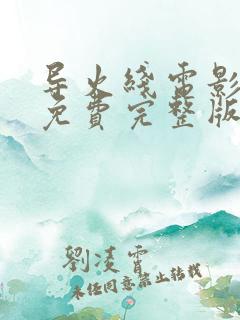 导火线电影
免費完整版
劉凌霄
未经同意禁止转载